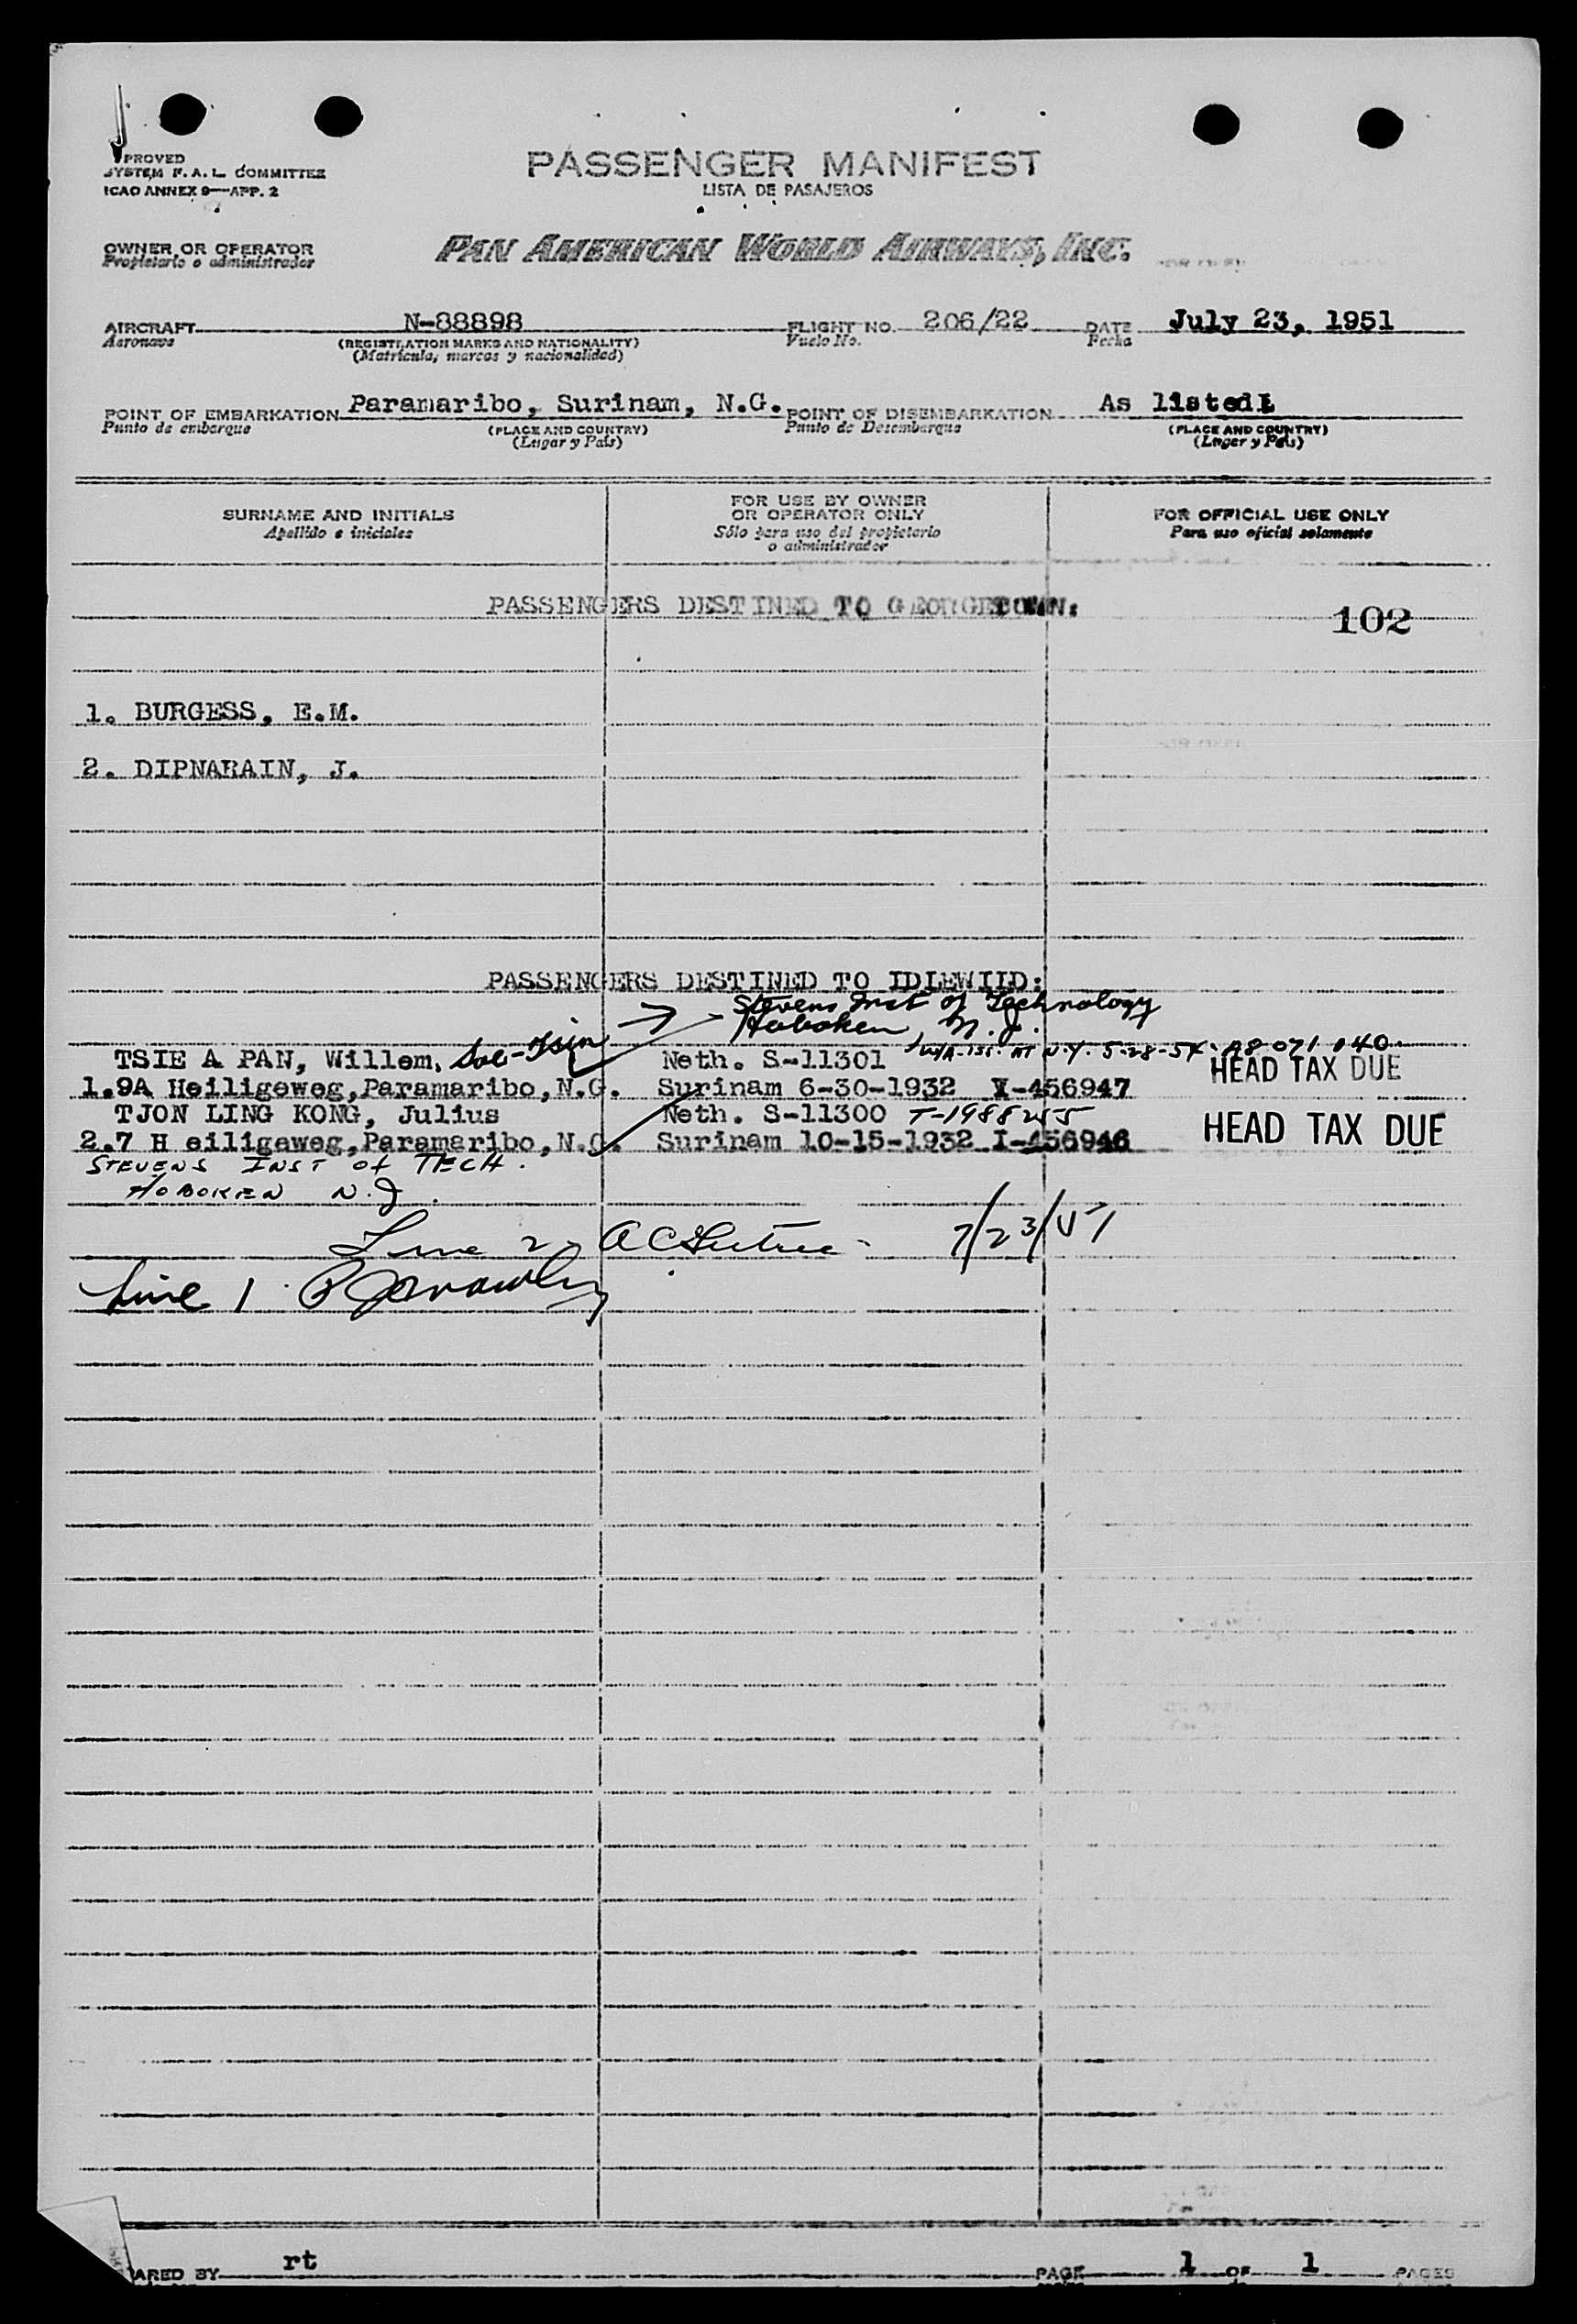 PROVED
SYSTEM F. A. L. COMMITTEE
ICAO ANNEX 9—APP. 2
PASSENGER MANIFEST
LISTA DE PASAJEROS
OWNER OR OPERATOR
Propietario o administrador
PAN AMERICAN WORLD AIRWAYS, INC.
AIRCRAFT N-88898 FLIGHT NO. 206/22 DATE July 23, 1951
Aeronave (REGISTRATION MARKS AND NATIONALITY) Vuelo No. Fecha
(Matrícula, marcas y nacionalidad)
POINT OF EMBARKATION Paramaribo, Surinam, N.G. POINT OF DISEMBARKATION As listed
Punto de embarque (PLACE AND COUNTRY) Punto de Desembarque (PLACE AND COUNTRY)
(Lugar y País) (Lugar y País)
SURNAME AND INITIALS FOR USE BY OWNER OR OPERATOR ONLY FOR OFFICIAL USE ONLY
Apellido e iniciales Sólo para uso del propietario o administrador Para uso oficial solamente
PASSENGERS DESTINED TO GEORGETOWN:
102
1. BURGESS, E.M.
2. DIPNARAIN, J.
PASSENGERS DESTINED TO IDLEWIID:
Stevens Inst of Technology
Hoboken, N.J.
W/A-iss. AT N.Y. 5-28-54. A8 071 040
TSIE A PAN, Willem, Soe-Tsin Neth. S-11301 HEAD TAX DUE
1.9A Heiligeweg,Paramaribo,N.G. Surinam 6-30-1932 -456947
TJON LING KONG, Julius Neth. S-11300 T-1988255
2.7 H eiligeweg,Paramaribo,N.G. Surinam 10-15-1932 I-456946 HEAD TAX DUE
STEVENS INST of TECH.
HOBOKEN N.J.
Line 2 7/23/51
Line 1
ARED BY rt PAGE 1 OF 1 PAGES